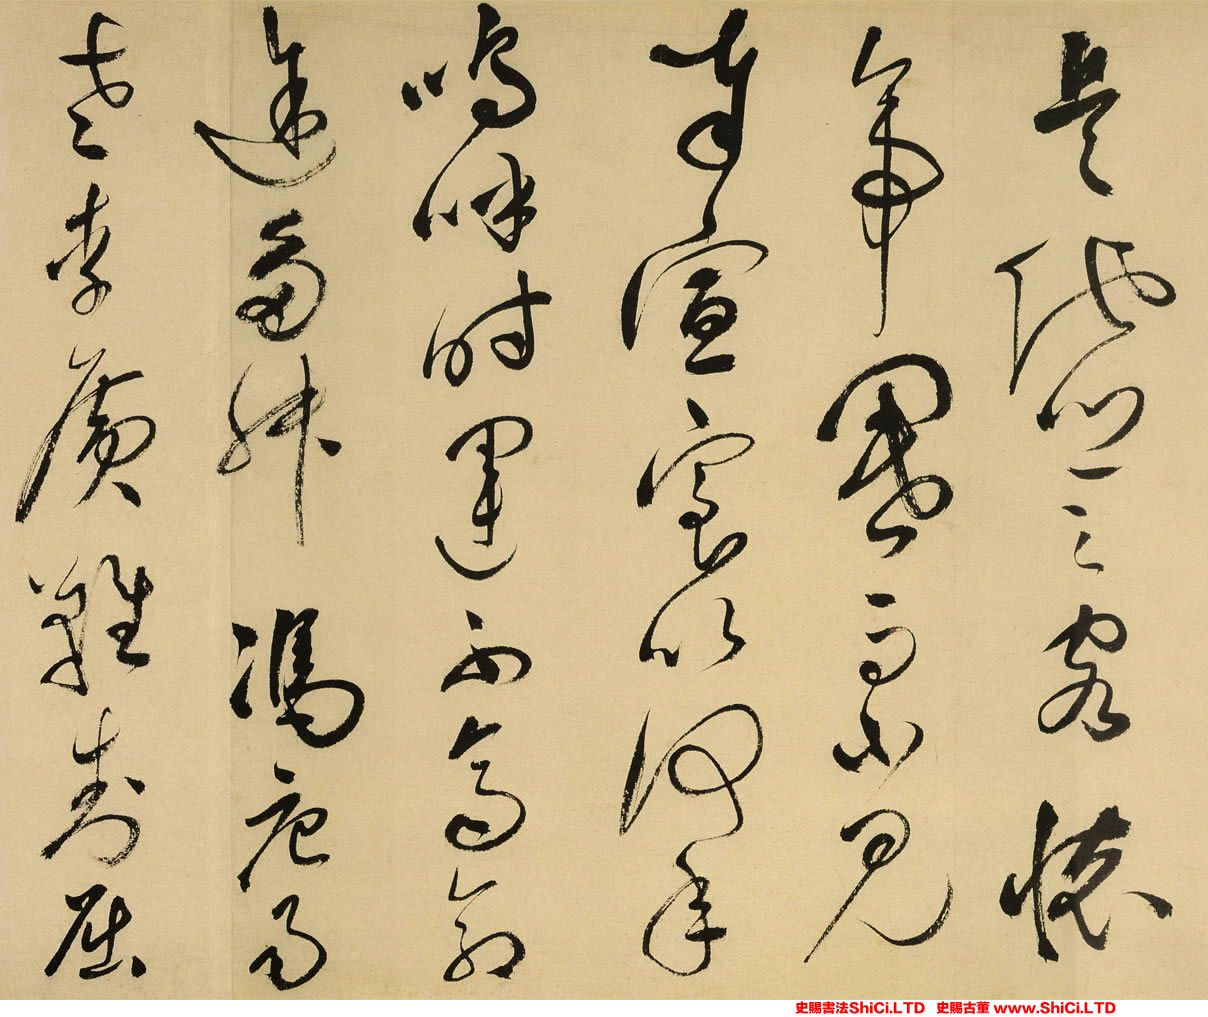 是他鄉之客懷
帝閽而不見
奉宣室以何年
嗚呼時運不齊命
途多舛馮唐易
老李廣難封屈
史賜書法ShiCi.LTD 史賜古董 www.ShiCi.LTD